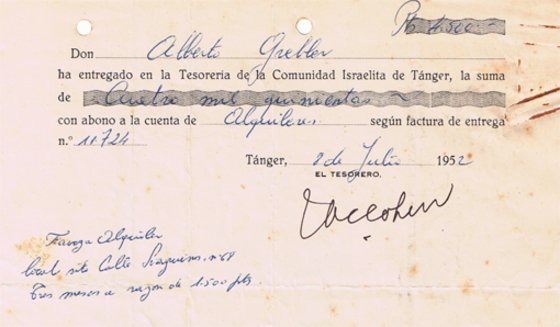 Pts 4.500
Don Alberto Grebler
ha entregado en la Tesorería de la Comunidad Israelita de Tánger, la suma
de Cuatro mil quinientas
con abono a la cuenta de Alquileres según factura de entrega
n.º 11724
Tánger, 8 de Julio 1952
EL TESORERO,
Alquiler
local sito Calle n.º 68
Tres meses a razón de 1.500 pts.